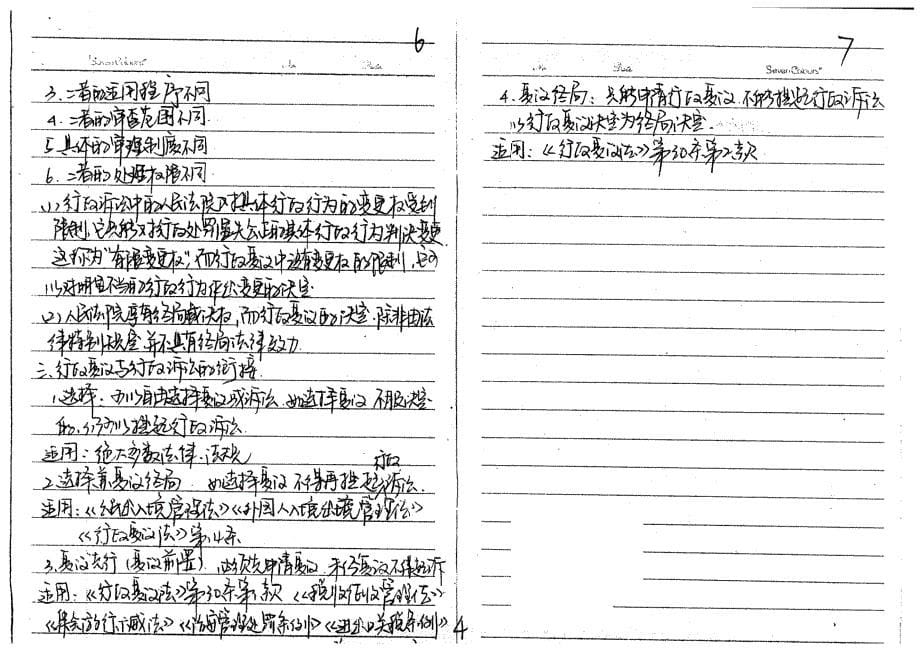 6
"Seven·Colours"
No
Date
3. 二者的适用程序不同
4. 二者的审查范围不同
5 具体的审理制度不同
6. 二者的处理权限不同
(1) 行政诉讼中的人民法院对具体行政行为的变更权受到
限制,它只能对行政处罚显失公正的具体行政行为判决变更
这称为"有限变更权",而行政复议中没有变更权的限制,它可
以对明显不当的行政行为作出变更的决定
(2) 人民法院享有终局裁决权,而行政复议的决定.除非由法
律特别规定 并不具有终局法律效力
三. 行政复议与行政诉讼的衔接
1.选择: 可以自由选择复议或诉讼. 如选择复议 不服决定
的. 仍可以提起行政诉讼
适用: 绝大多数法律、法规
2.选择兼复议终局 如选择复议 不得再提起行政诉讼.
适用:《公民出入境管理法》《外国人入境出境管理法》
《行政复议法》第14条
3.复议先行(复议前置) 必须先申请复议 未经复议不得起诉
适用:《行政复议法》第30条第1款 《税收征收管理法》
《集会游行示威法》《治安管理处罚条例》《进出口关税条例》4
7
No
Date
"Seven·Colours"
4.复议终局: 只能申请行政复议.不能提起行政诉讼
以行政复议决定为终局决定.
适用:《行政复议法》第30条第2款